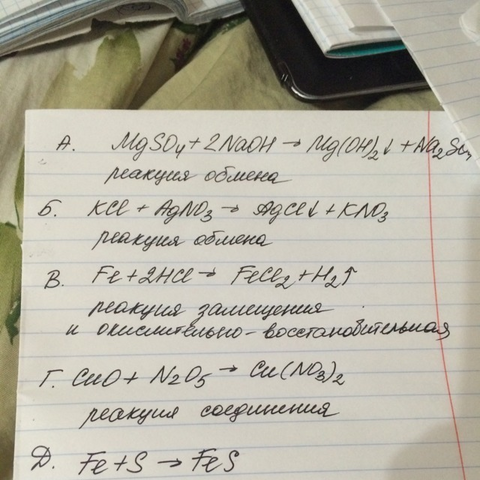 А. MgSO₄ + 2NaOH → Mg(OH)₂↓ + Na₂SO₄
реакция обмена
Б. KCl + AgNO₃ → AgCl↓ + KNO₃
реакция обмена
В. Fe + 2HCl → FeCl₂ + H₂↑
реакция замещения
и окислительно-восстановительная
Г. CuO + N₂O₅ → Cu(NO₃)₂
реакция соединения
Д. Fe + S → FeS